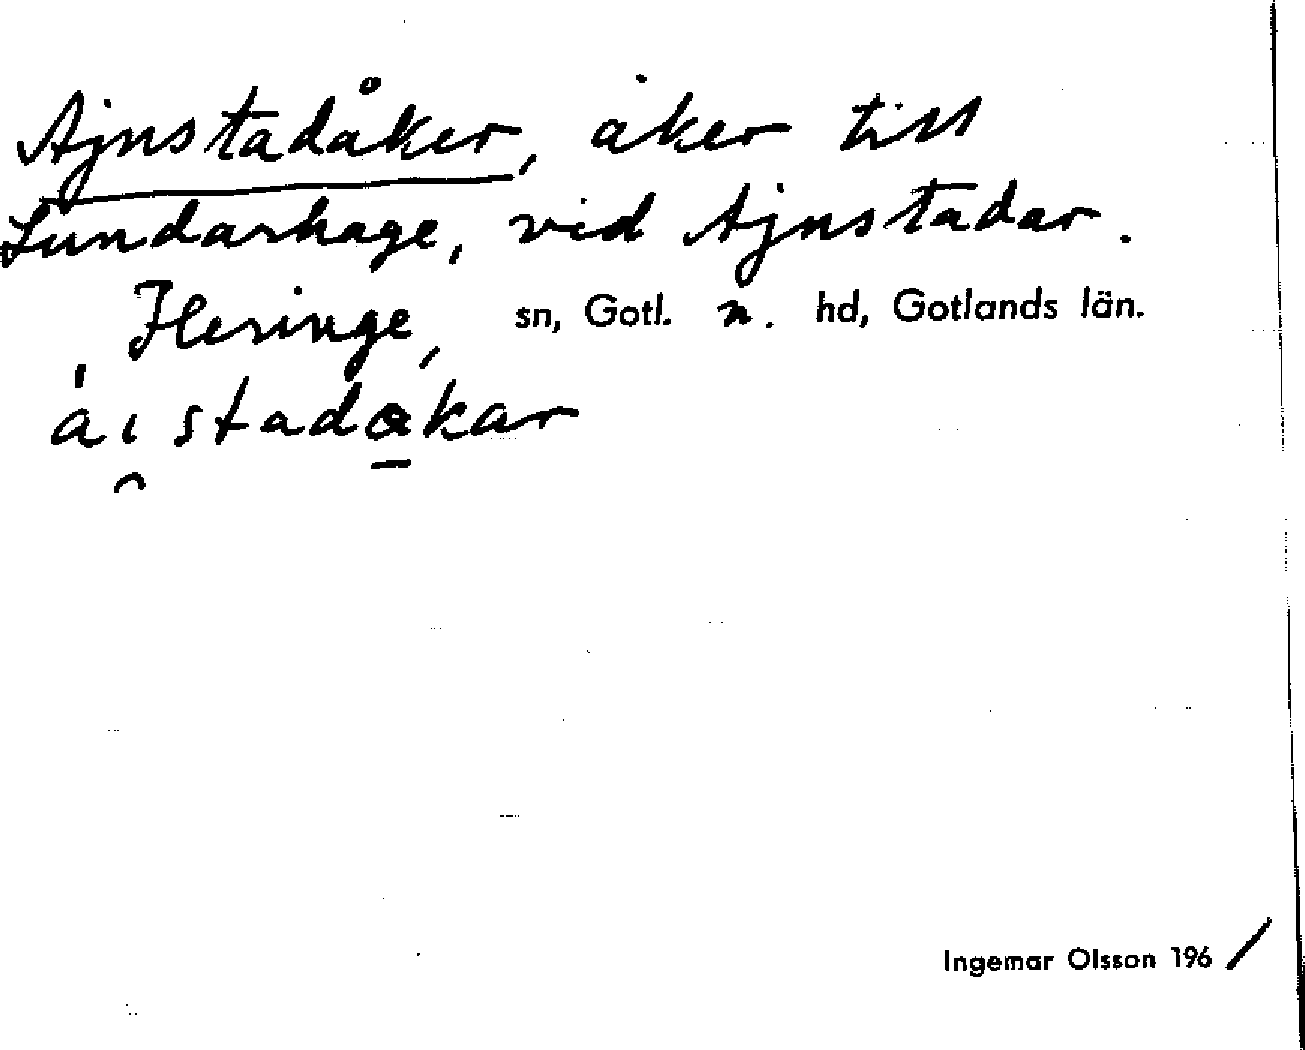 Ajnstadåker, åker till
Lundarhage, vid Ajnstadar.
Heringe, sn, Gotl. n. hd, Gotlands län.
Ingemar Olsson 196/